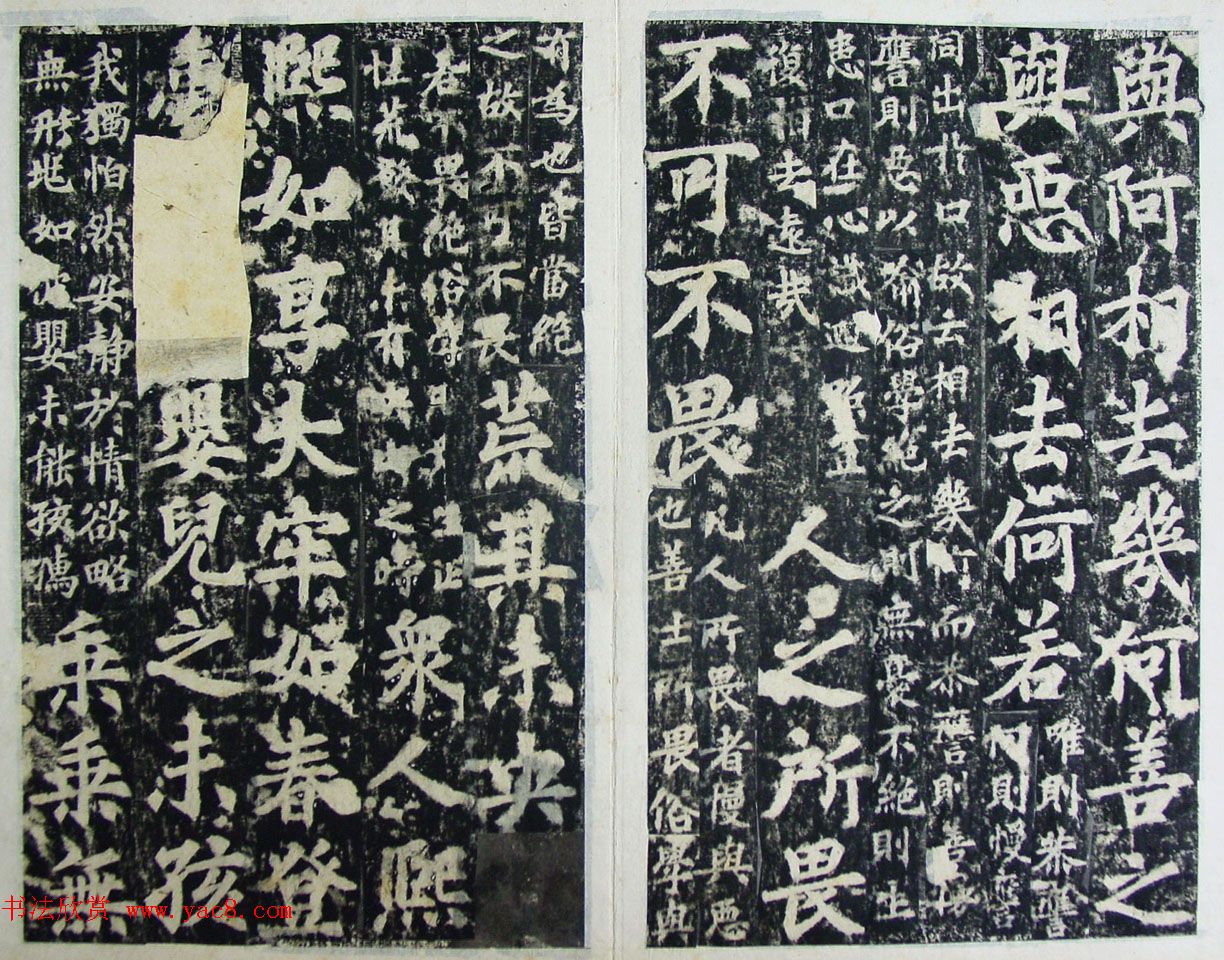 與阿相去幾何善之
與惡相去何若
唯則恭譍
阿則慢譍
同出於口故云相去幾何而恭譍則善慢
譍則惡以喻俗學絶之則無憂不絶則生
患口在心識迴照豈
復相去遠哉
人之所畏
不可不畏
凡人所畏者慢與惡
也善士所畏俗學與
有為也皆當絶
之故不可不畏
荒其未央
若不畏絶俗學生正
性荒廢其未有央之時
眾人熙
熙如享太牢如春登
臺嬰兒之未孩
我獨怕然安靜於情欲略
無形兆如彼嬰未能孩
乘乘無
书法欣赏 www.yac8.com